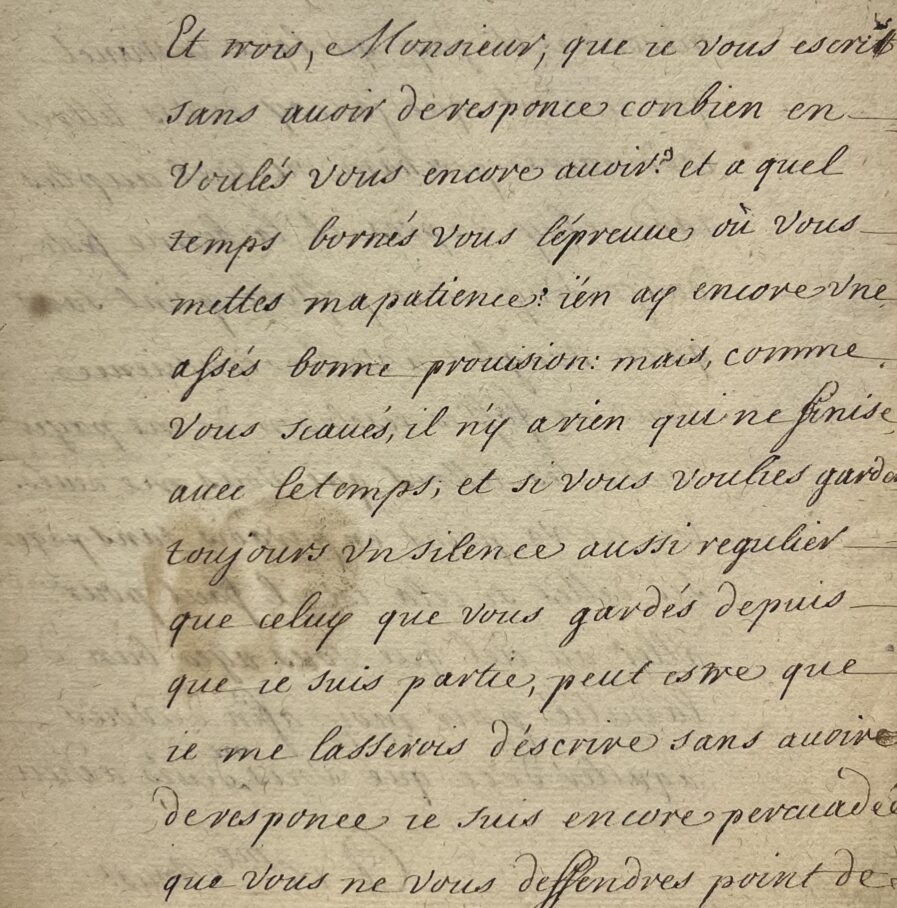 Et trois, Monsieur, que ie vous escrit
sans auoir de responce conbien en
voulés vous encore auoir? et a quel
temps bornés vous l'épreuue où vous
mettes ma patience? i'en ay encore vne
assés bonne prouision: mais, comme
vous scaués, il n'y a rien qui ne finise
auec le temps; et si vous voulies garder
toujours vn silence aussi regulier
que celuy que vous gardés depuis
que ie suis partie, peut estre que
ie me lasserois d'éscrire sans auoire
de responce ie suis encore percuadée
que vous ne vous deffendres point de